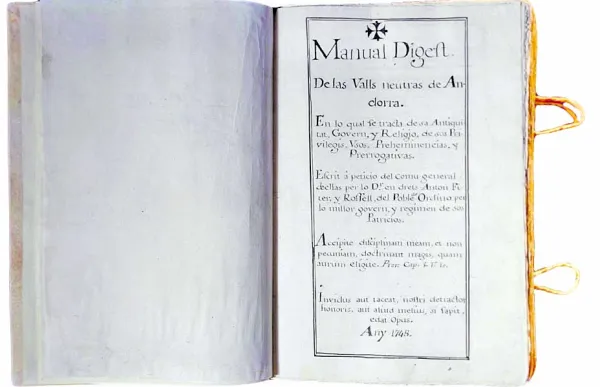 Manual Digest.
De las Valls neutras de An-
dorra.
En lo qual se tracta de sa Antiqui-
tat, Govern, y Religio, de sus Pri-
vilegis, Usos, Preheminencias, y
Prerrogativas.
Escrit á peticio del comu general
de ellas per lo Dr. en drets Anton Fi-
ter, y Rossell, del Poble Ordino per
lo millor govern, y regimen de sos
Patricios.
Accipite disciplinam meam, et non
pecuniam, doctrinam magis, quam
aurum eligite. Prov. Cap. 8. V. 10.
Invidus aut taceat, nostri detractor
honoris, aut aliud melius, si sapit,
edat Opus.
Any 1748.